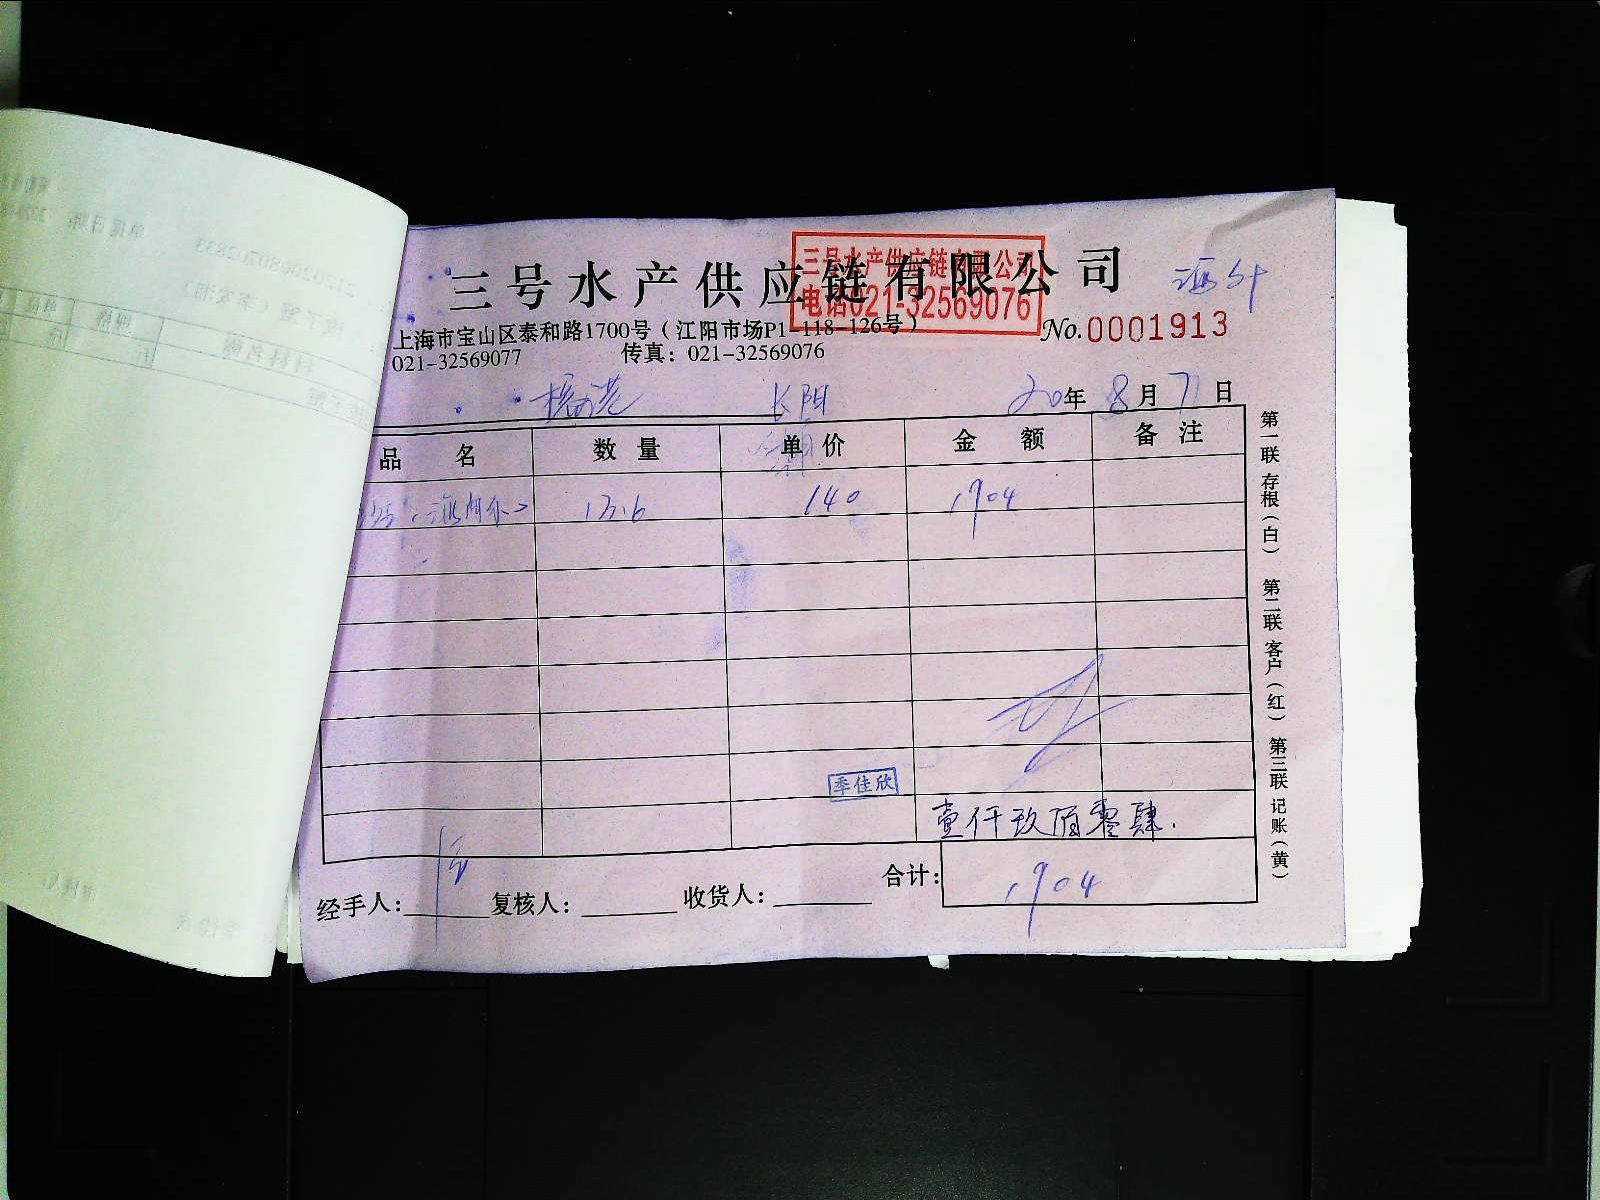 三号水产供应链有限公司
三号水产供应链有限公司
电话021-32569076
上海市宝山区泰和路1700号（江阳市场P1-118-126号）
No.0001913
021-32569077 传真：021-32569076
长阳 20年8月7日
品名 数量 单价 金额 备注
13.6 140 1904
季佳欣
壹仟玖佰零肆.
合计： 1904
经手人： 复核人： 收货人：
第一联 存根（白） 第二联 客户（红） 第三联 记账（黄）